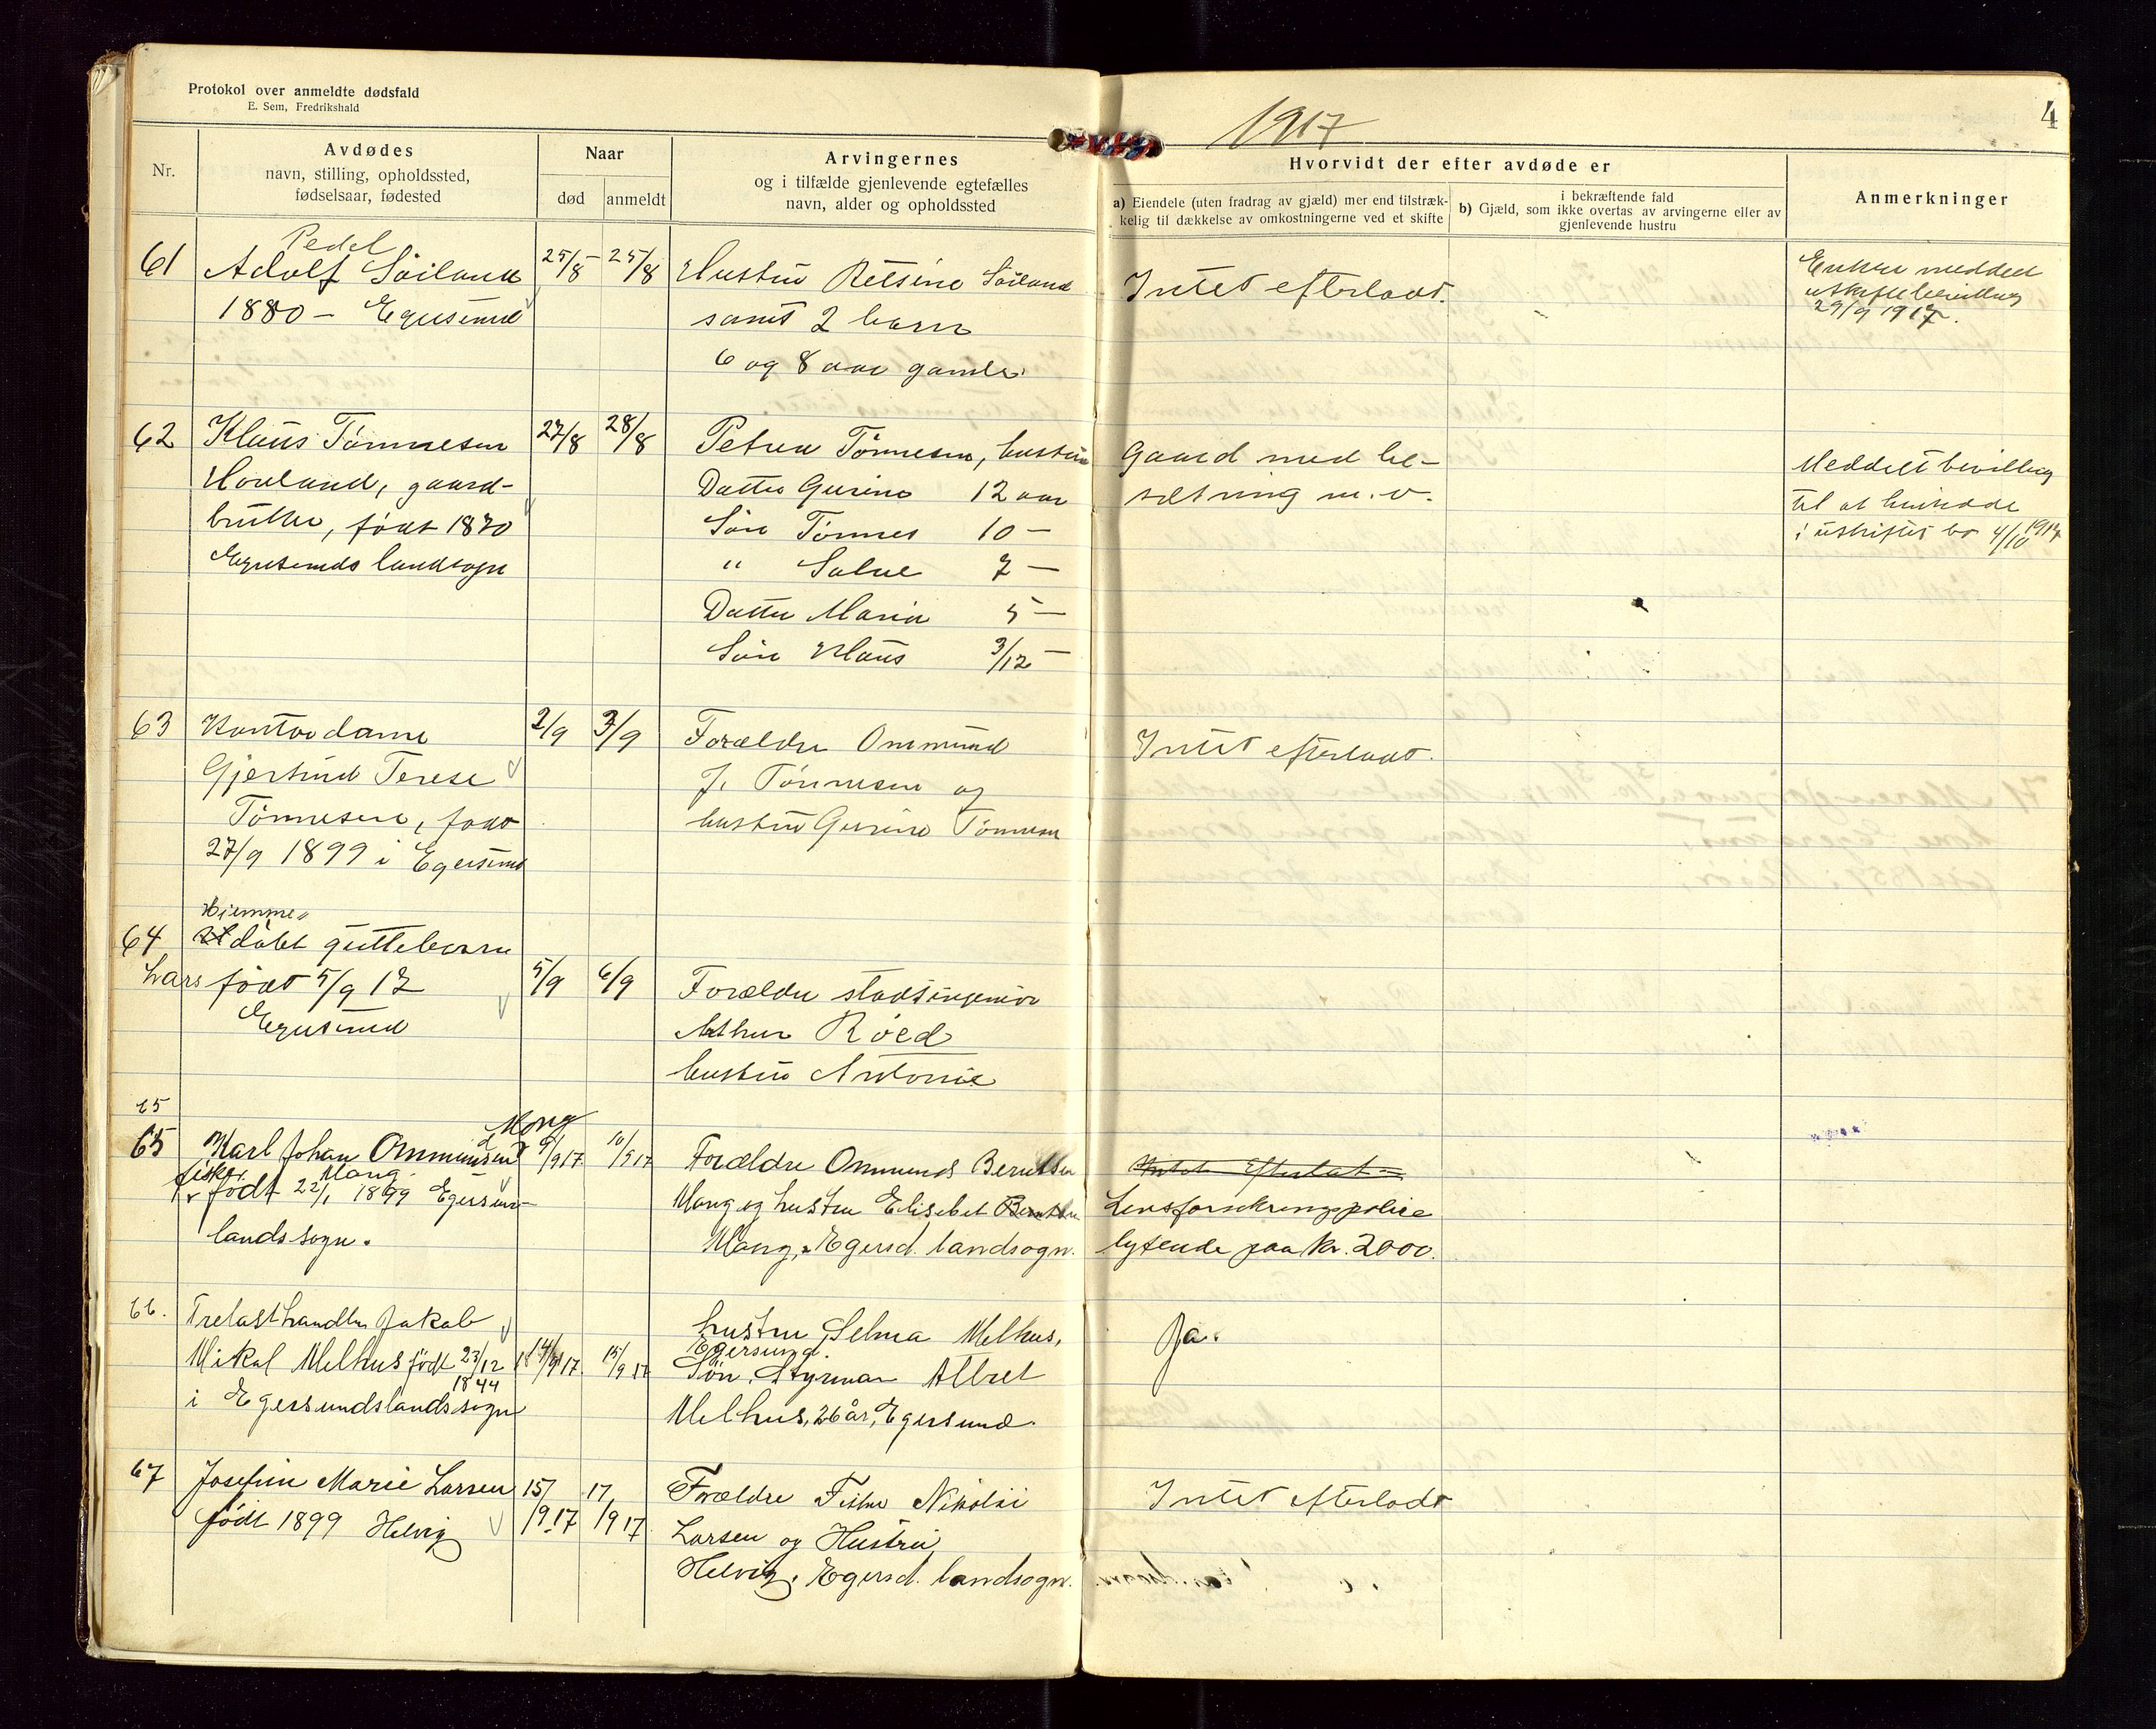 Protokol over anmeldte dødsfald
E. Sem, Fredrikshald
1917
4
Nr.
Avdødes
navn, stilling, opholdssted,
fødselsaar, fødested
Naar
død
anmeldt
Arvingernes
og i tilfælde gjenlevende egtefælles
navn, alder og opholdssted
Hvorvidt der efter avdøde er
a) Eiendele (uten fradrag av gjæld) mer end tilstræk-
kelig til dækkelse av omkostningerne ved et skifte
i bekræftende fald
b) Gjæld, som ikke overtas av arvingerne eller av
gjenlevende hustru
Anmerkninger
61
Pedel
Adolf Söiland
1880 – Egersund
25/8
25/8
Hustru Söiland
samt 2 barn
6 og 8 aar gamle
Intet efterladt.
Enken meddelt
uskiftebevilling
29/9 1917.
62
Klaus Tönnesen
Hovland, gaard-
bruker, født 1870
Egersunds landsogn
27/8
28/8
Petra Tönnesen, hustru
Datter Gurine 12 aar
Sön Tönnes 10 –
" Salve 7 –
Datter Maria 5 –
Sön Klaus 3/12 –
Gaard med be-
sætning m. v.
Meddelt bevilling
til at hensidde
i uskiftet bo 4/10 1917
63
Kontordame
Gjertrud Terese
Tönnesen, født
27/9 1899 i Egersund
2/9
3/9
Forældre Ommund
J. Tönnesen og
hustru Gurine Tönnesen
Intet efterladt.
64
Hjemme"
döbt guttebarn
Lars født 5/9 17
Egersund
5/9
6/9
Forældre stadsingeniör
Arthur Röed
hustru Antonie
65
65
Mong
Karl Johan Ommundsen
fisker Mong
født 22/1 1899 Egersund
landssogn.
9/9 17
10/9 17
Forældre Ommund Berntsen
Mong og hustru Elisabet Berntsen
Mong, Egersd. landsogn.
Intet Efterlat
Livsforsikringspolice
lydende paa kr. 2000.
66.
Trelasthandler Jakob
Mikal Melhus født 23/12
1844
i Egersundslandssogn
14/9 17
15/9 17
hustru Selma Melhus,
Egersund.
Sön, Styrman Albret
Melhus, 26 år, Egersund.
Ja.
67
Josefine Marie Larsen
født 1899 Helvig
15/9 17
17/9 17
Forældre Fisker Nikolai
Larsen og Hustru
Helvig, Egersd. landsogn.
Intet efterladt